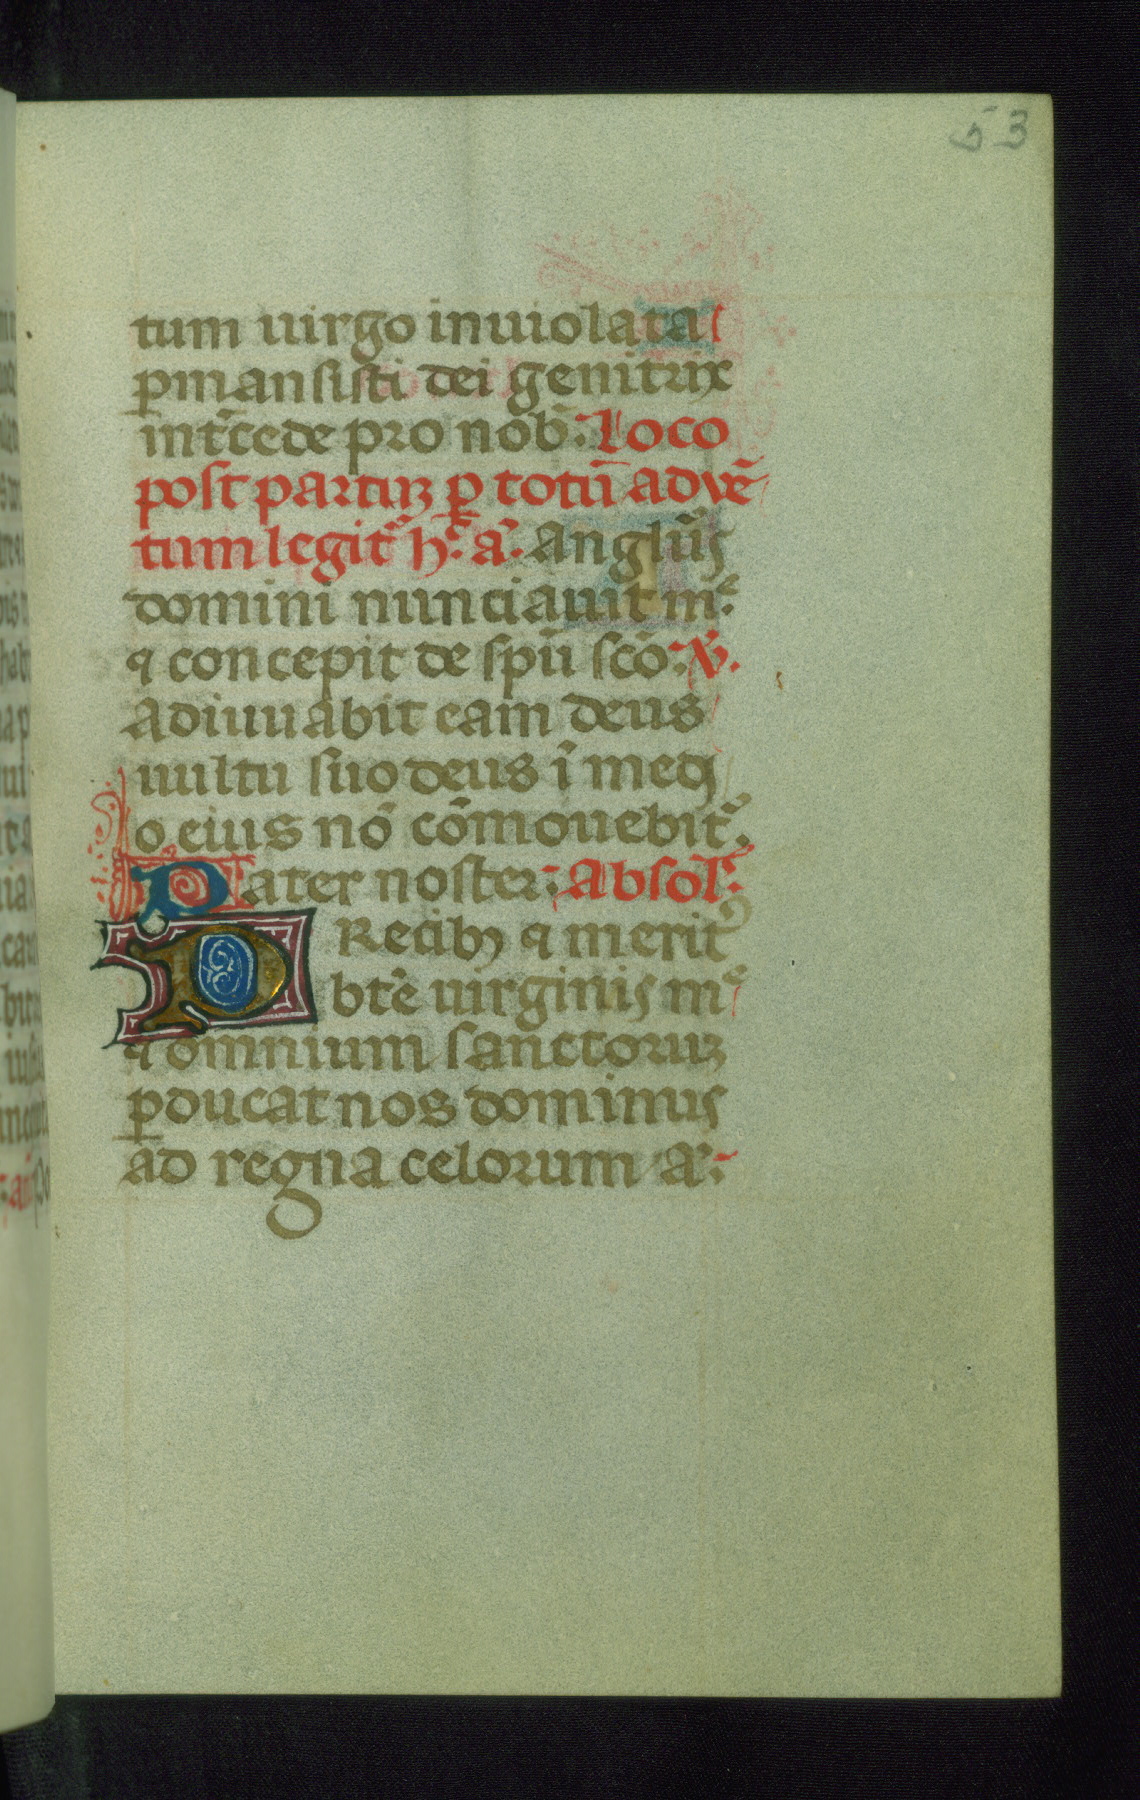 53
tum uirgo inuiolata
ꝑmansisti dei genitrix
int̃cede pro nob̃. Loco
post partuꝫ ꝑ totũ aduẽ
tum legit᷑ h̾. a᷑. Anglũs
domini nunciauit m᷑.
⁊ concepit de spũ scõ. V̾.
Adiuuabit eam deus
uultu suo deus ĩ medi
o eius nõ cõmouebit᷑.
Pater noster. Absol᷑.
PRecibꝫ ⁊ meritꝰ
btẽ uirginis m᷑
⁊ omnium sanctoruꝫ
ꝑducat nos dominus
ad regna celorum a᷑.